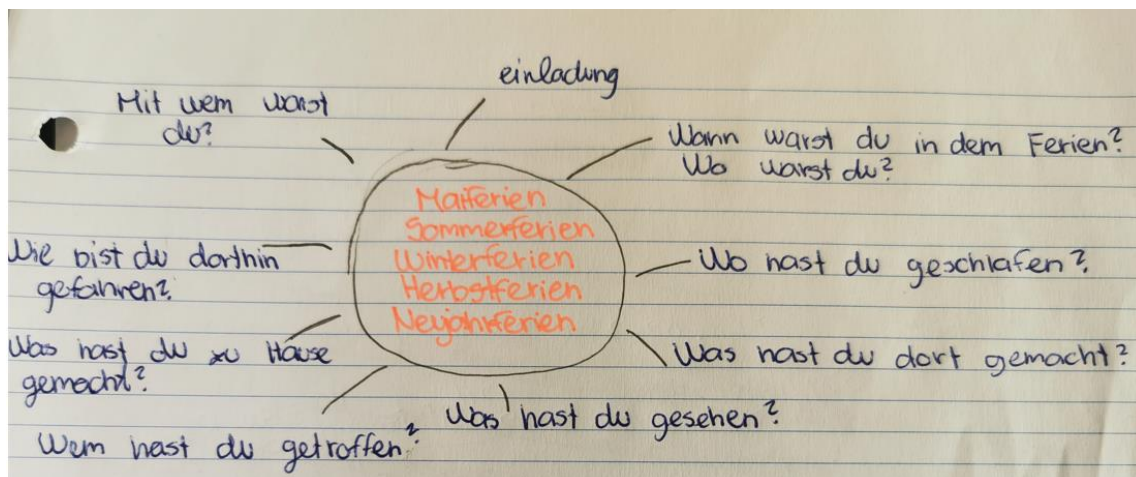 einladung
Mit wem warst
du?
Wann warst du in dem Ferien?
Wo warst du?
Maiferien
Sommerferien
Winterferien
Herbstferien
Neujahrferien
Wie bist du dorthin
gefahren?
Wo hast du geschlafen?
Was hast du zu Hause
gemacht?
Was hast du dort gemacht?
Was hast du gesehen?
Wem hast du getroffen?